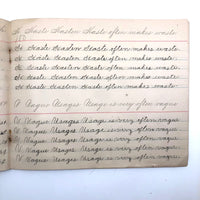 H Haste Hasten Haste often makes waste.
H. Haste Hasten Haste often makes waste.
H. Haste Hasten Haste often makes waste.
H. Haste Hasten Haste often makes waste.
H. Haste Hasten Haste often makes waste.
H. Haste Hasten Haste often makes waste.
V Vague Usages Usage is very often vague
V. Vague Usages Usage is very often vague.
V. Vague Usages Usage is very often vague.
V. Vague Usages Usage is very often vague.
V. Vague Usages Usage is very often vague.
V. Vague Usages Usage is very often vague.